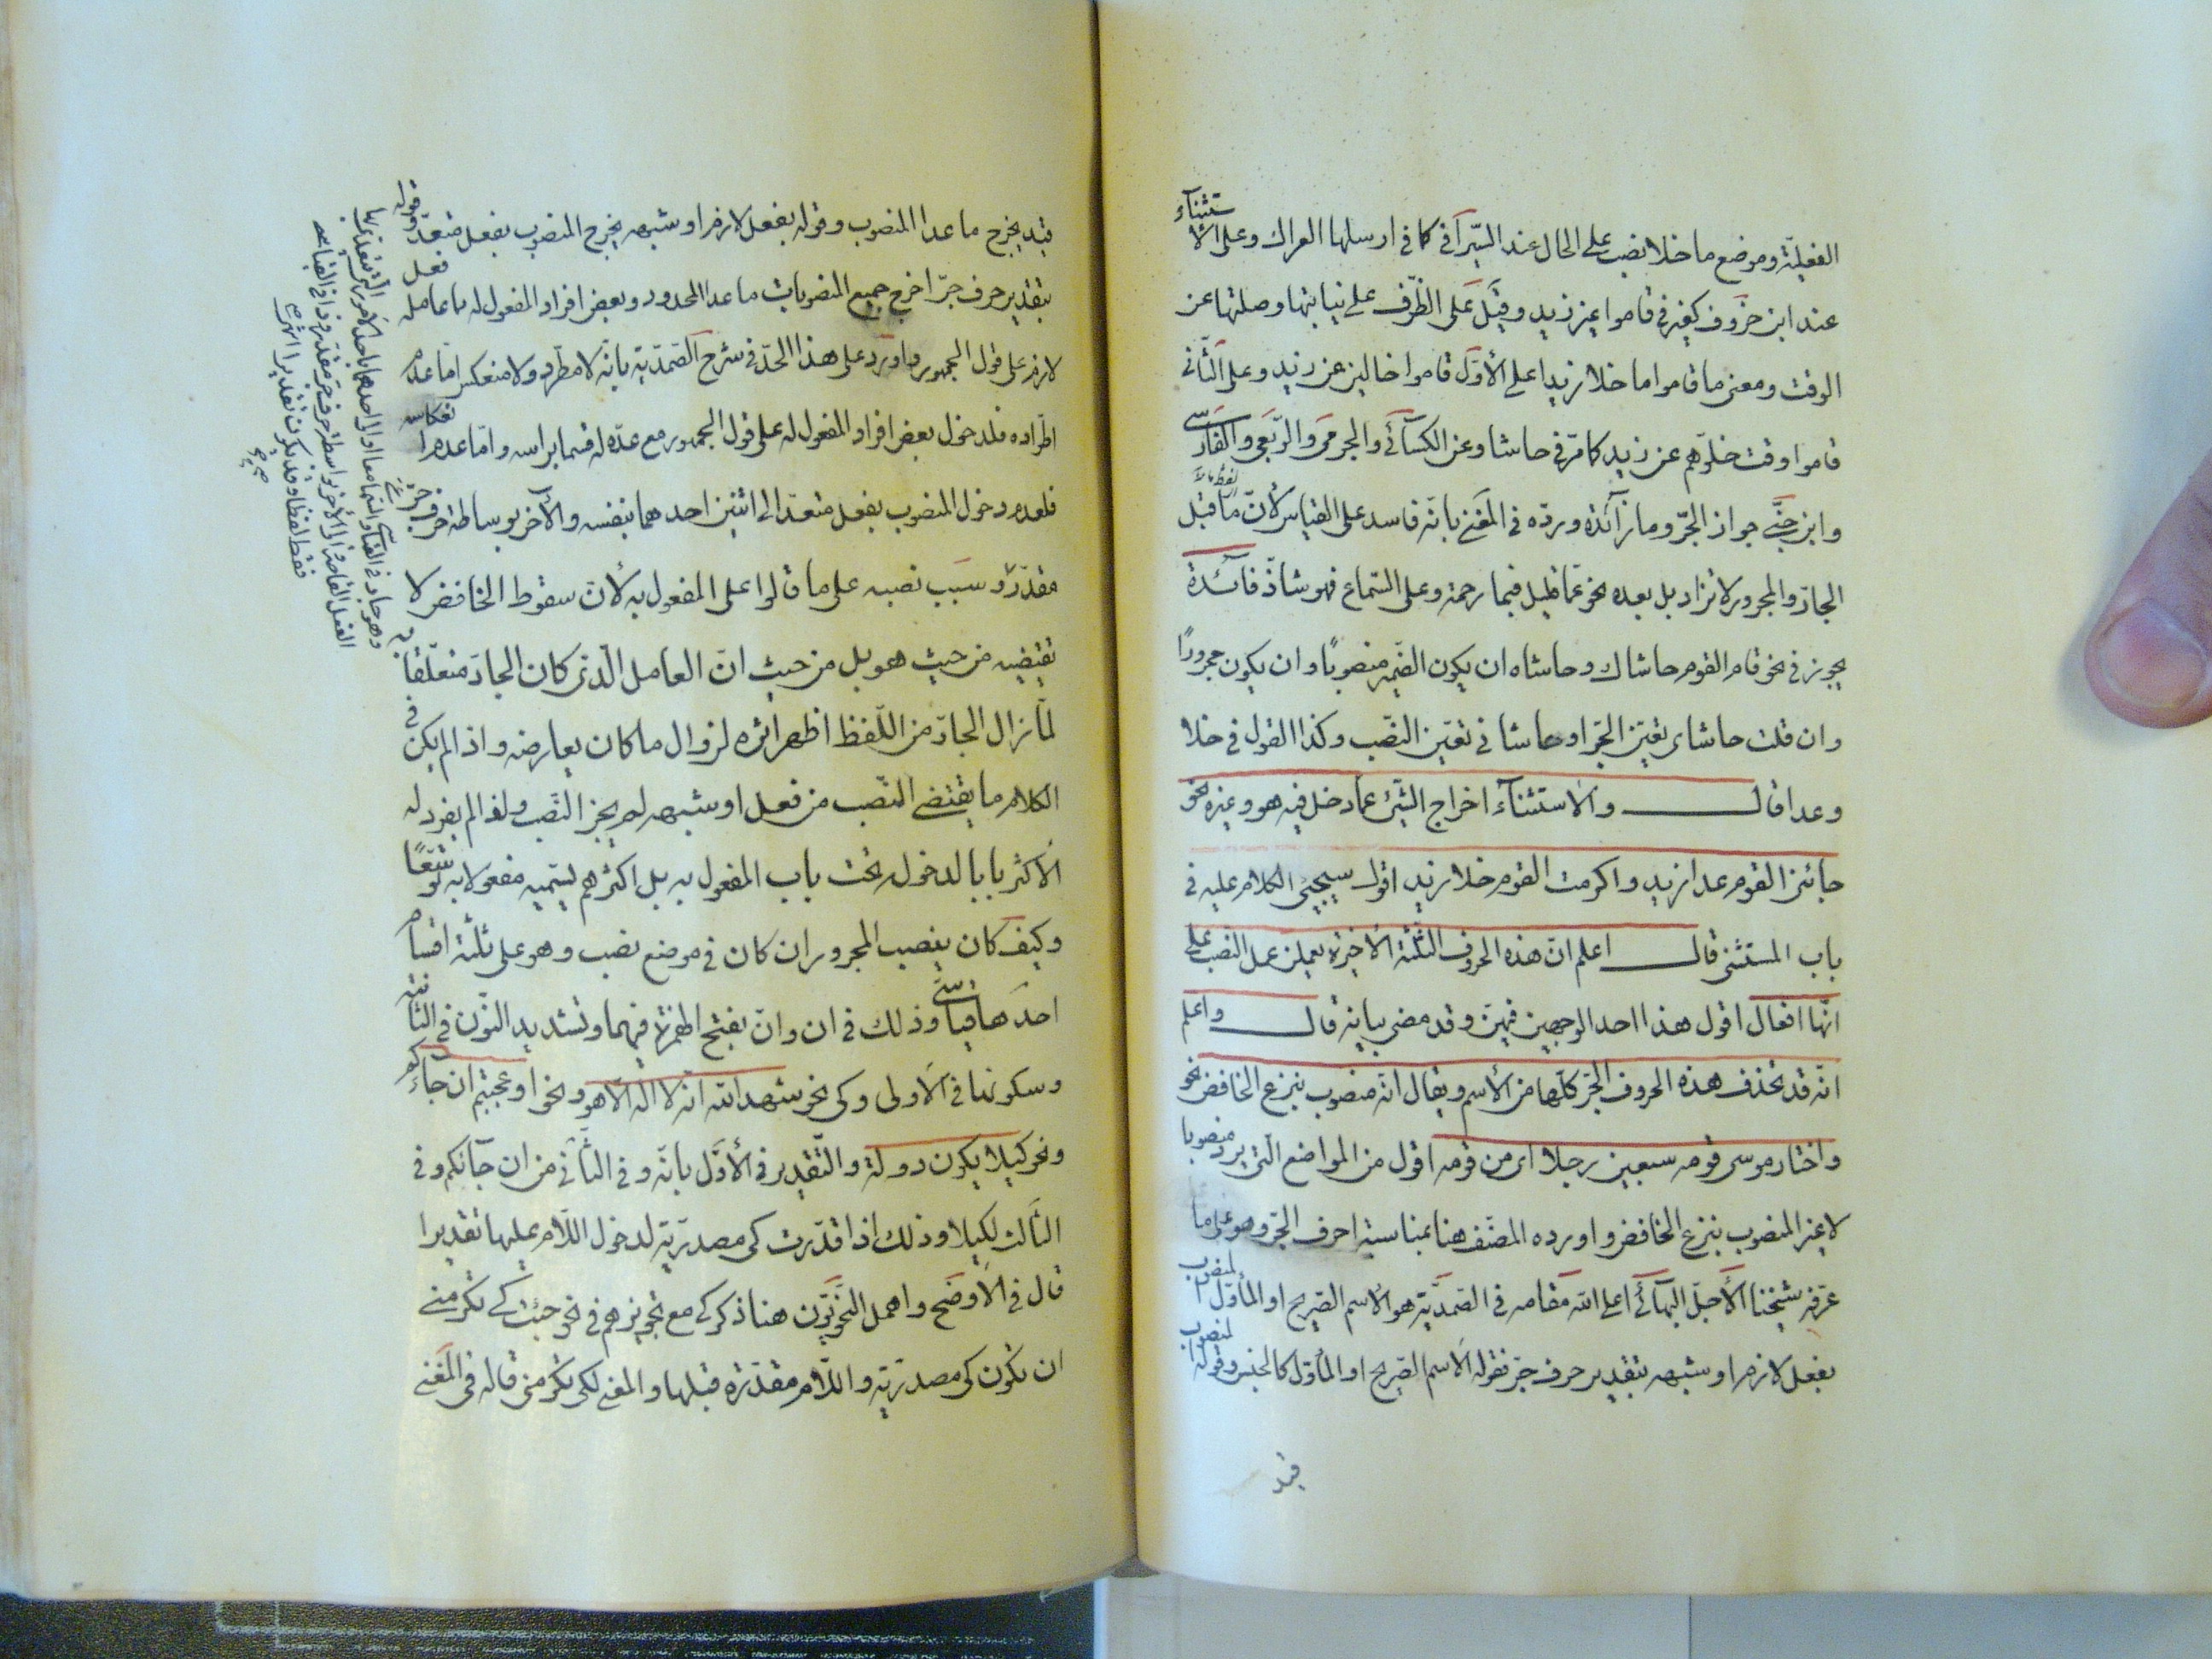 الفعليّة وموضع ما خلا نصب على الحال عند السّيرافى كما فى ارسلها العراك وعلى الاستثناء
عند ابن خروف كغير فى قاموا غير زيد وقيل على الظّرف على نيابتها وصلتها عن
الوقت ومعنى ما قاموا ما خلا زيدا على الأوّل قاموا خالين عن زيد وعلى الثّانى
قاموا وقت خلوّهم عن زيد كما مرّ فى حاشا وعن الكسائى والجرمى والرّبعى والفارسى
وابن جنّى جواز الجرّ وما زائدة وردّه فى المغنى بانّه فاسد على القياس لأنّ ما قبل
الجارّ والمجرور لا تزاد بل بعده نحو عمّا قليل فبما رحمة وعلى السّماع فهو شاذّ فائدة
يجوز فى نحو قام القوم حاشاك وحاشاه ان يكون الضّمير منصوبًا وان يكون مجرورًا
وان قلت حاشاى تعيّن الجرّ او حاشانى تعيّن النّصب وكذا القول فى خلا
وعدا قال والاستثناء اخراج الشّئ عمّا دخل فيه هو وغيره نحو
جائنى القوم عدا زيد واكرمت القوم خلا زيد اقول سيجيئ الكلام عليه فى
باب المستثنى قال اعلم انّ هذه الحروف الثّلثة الأخيرة يعملن عمل النّصب على
انّها افعال اقول هذا احد الوجهين فيهنّ وقد مضى بيانه قال واعلم
انّه قد تحذف هذه الحروف الجرّ كلّها من الأسم ويقال انّه منصوب بنزع الخافض نحو
واختار موسى قومه سبعين رجلا اى من قومه اقول من المواضع الّتى يرد منصوبا
لا غير المنصوب بنزع الخافض واورده المصنّف هنا بمناسبة احرف الجرّ وهو على ما
عرّفه شيخنا الأجلّ البهائى اعلى الله مقامه فى الصّمديّة هو الاسم الصّريح او المأوّل المنصوب
بفعل لازم او شبهه بتقدير حرف جرّ فقوله الاسم الصّريح او المأوّل كالجنس وقوله المنصوب
قيد
قيد يخرج ما عدا المنصوب وقوله بفعل لازم او شبهه يخرج المنصوب بفعل متعدّ وقوله
بتقدير حرف جرّ اخرج جميع المنصوبات ما عدا المحدود وبعض افراد المفعول له مما عامله فعل
لازم على قول الجمهور واورد على هذا الحدّ فى شرح الصّمديّة بانّه لا مطّرد ولا منعكس امّا عدم
اطّراده فلدخول بعض افراد المفعول له على قول الجمهور مع عدّه له قسما براسه وامّا عدم انعكاسه
فلعدم دخول المنصوب بفعل متعدّ الى اثنين احدهما بنفسه والأخر بوساطة حرف جرّ
مقدّر وسبب نصبه على ما قالوا على المفعول به لأنّ سقوط الخافض لا
يقتضيه من حيث هو بل من حيث انّ العامل الّذى كان الجارّ متعلّقا به
لمّا زال الجارّ من اللّفظ اظهر اثره لزوال ما كان يعارضه واذا لم يكن فى
الكلام ما يقتضى النّصب من فعل او شبهه لم يجز النّصب ولذا لم يفرد له
الأكثر بابا لدخوله تحت باب المفعول به بل اكثرهم يسمّيه مفعولا به توسّعًا
وكيف كان ينصب المجرور ان كان فى موضع نصب وهو على ثلثة اقسام
احدها قياسىّ وذلك فى ان وانّ بفتح الهمزة فيهما وتشديد النّون فى الثّانية
وسكونها فى الأولى وكى نحو شهد الله انّه لا اله الّا هو ونحو اوعجبتم ان جاءكم
ونحو كيلا يكون دولة والتّقدير فى الأوّل بانّه وفى الثّانى من ان جاءكم وفى
الثّالث لكيلا وذلك اذا قدّرت كى مصدريّة لدخول اللّام عليها تقديرا
قال فى الأوضح واهمل النّحويّون هنا ذكر كى مع تجويزهم فى نحو جئت كى تكرمنى
ان تكون كى مصدريّة واللّام مقدّرة قبلها والمعنى لكى تكرمنى قاله فى المغنى